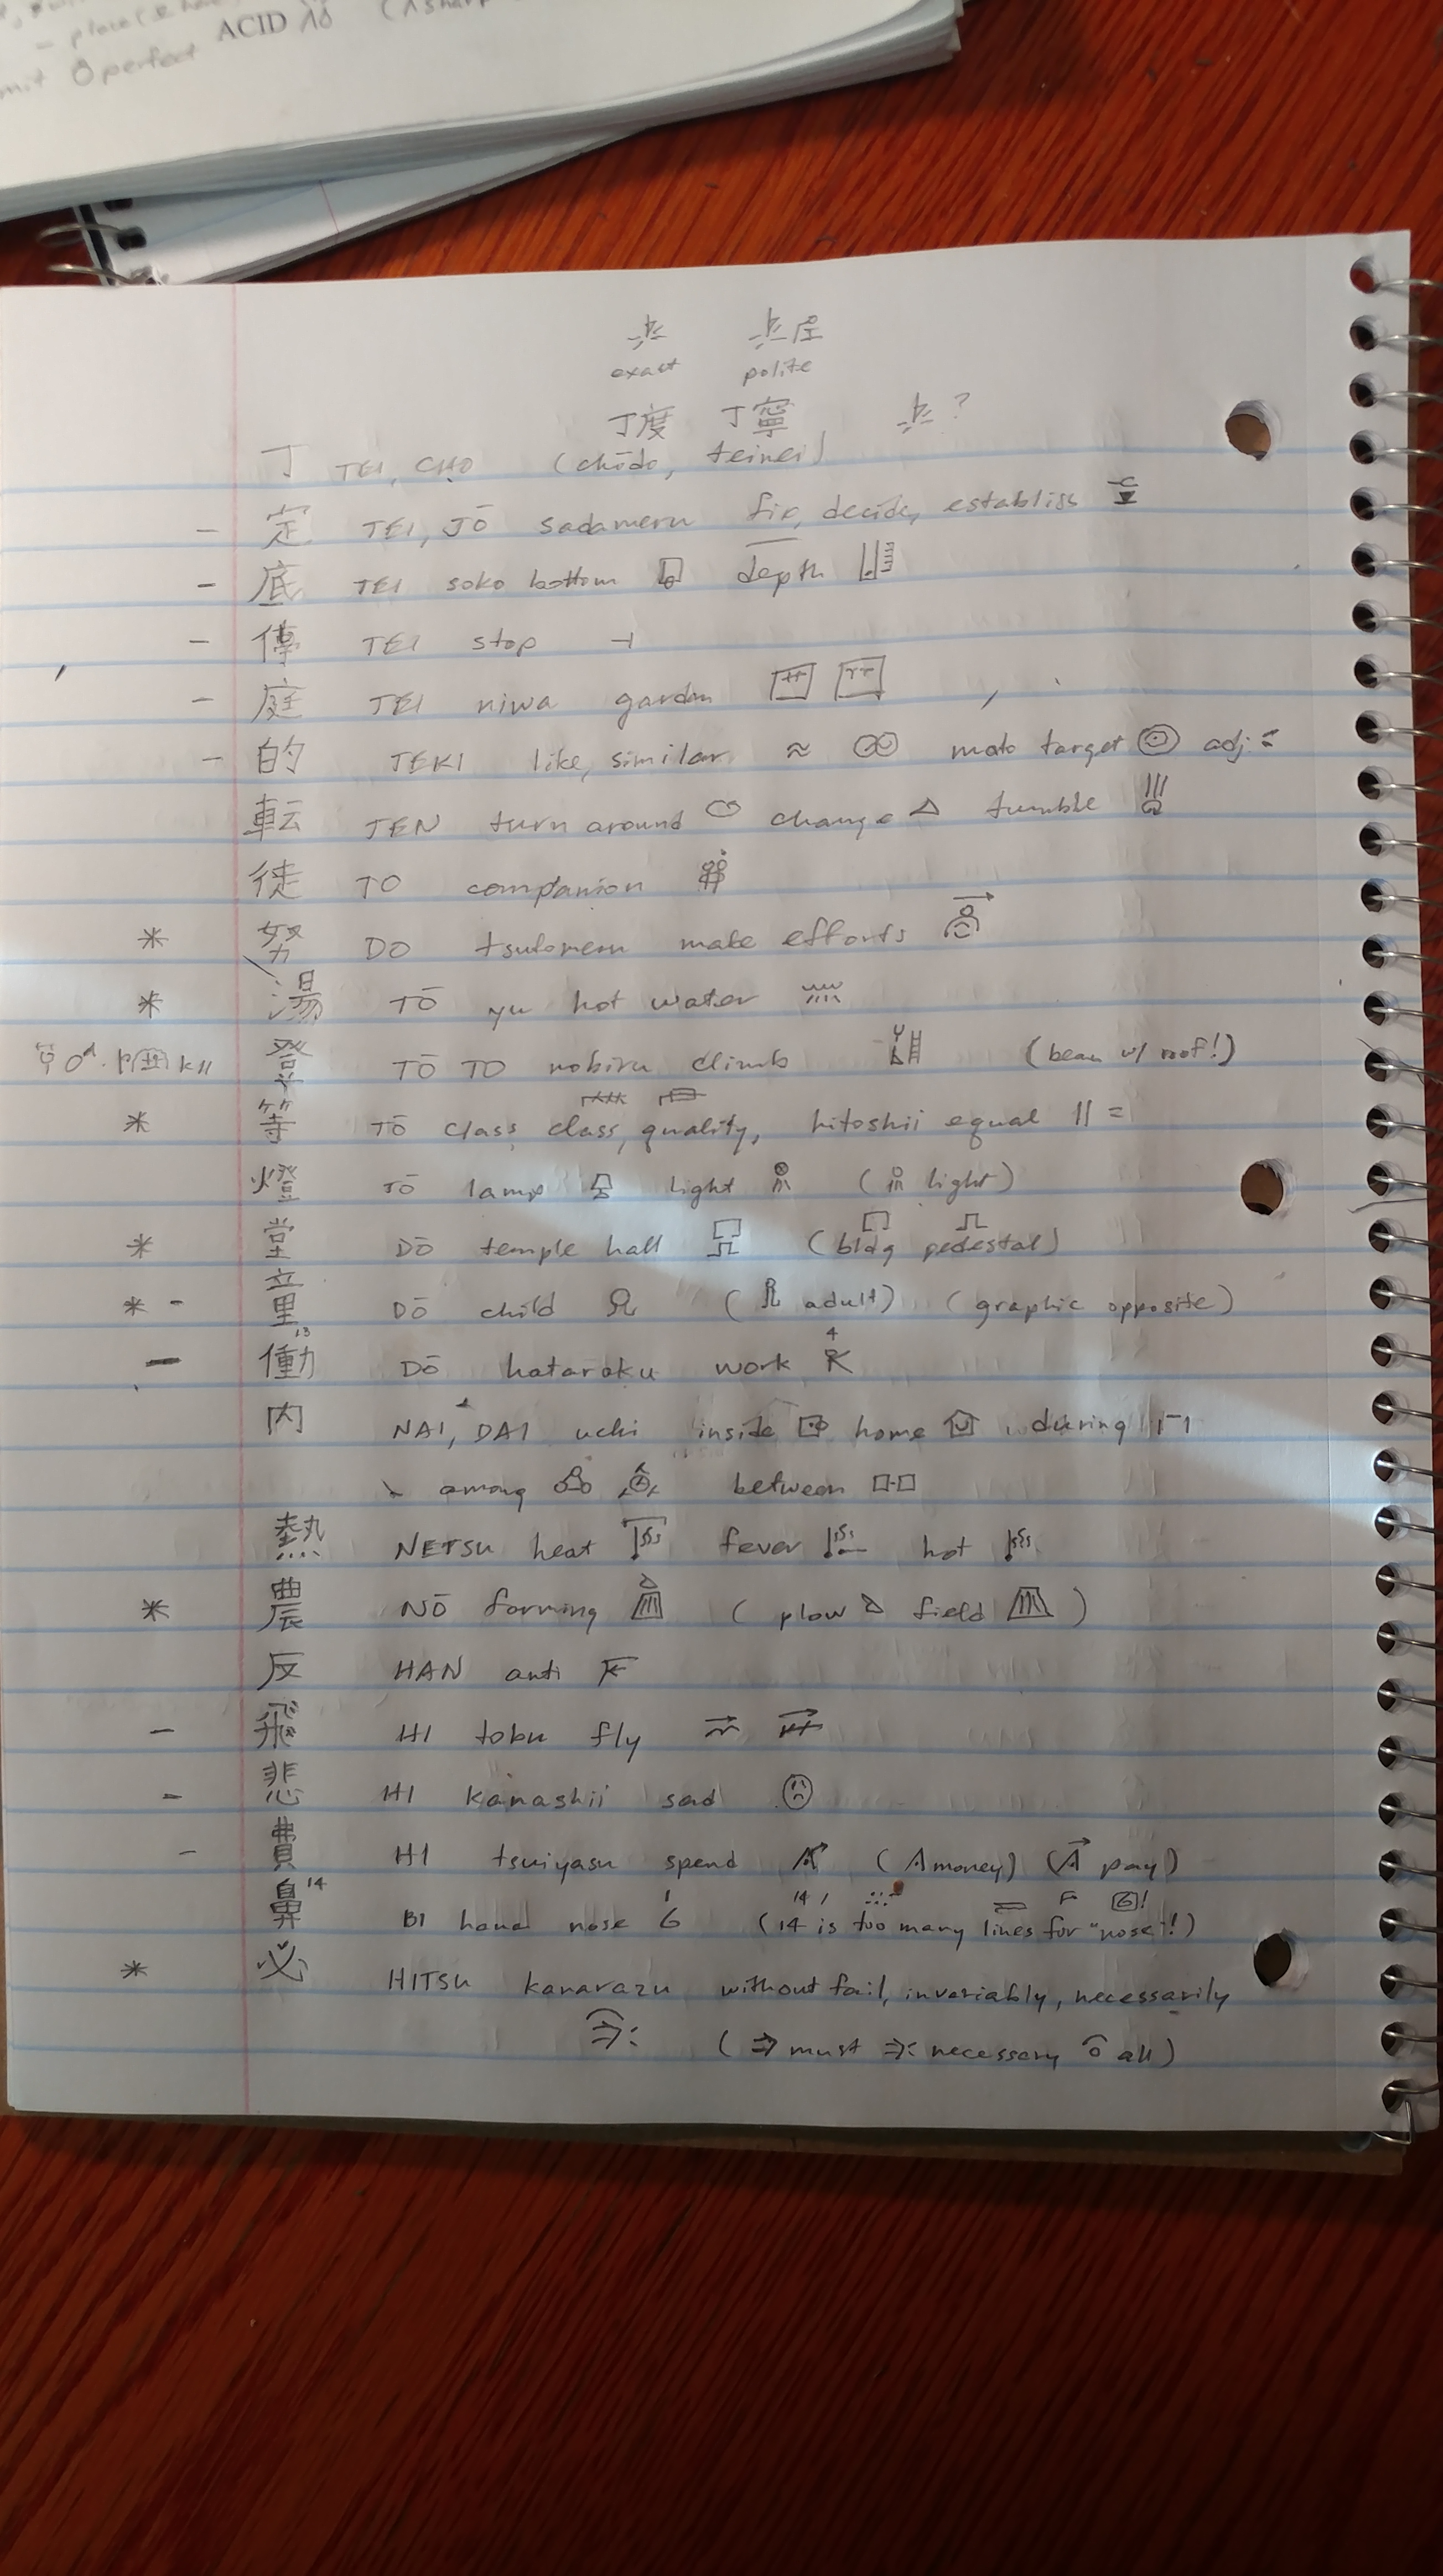 place
ACID
mit perfect
exact polite
丁度 丁寧 ?
丁 TEI, CHO (chōdo, teinei)
- 定 TEI, JŌ sadameru fix, decide, establish
- 底 TEI soko bottom depth
- 停 TEI stop ⊣
- 庭 TEI niwa garden
- 的 TEKI like, similar ≈ mato target ◎ adj
転 TEN turn around change △ tumble
徒 TO companion
* 努 DO tsutomeru make efforts
* 湯 TŌ yu hot water
登 TŌ TO nobiru climb (bean w/ roof!)
* 等 TŌ class, class, quality, hitoshii equal || =
燈 TŌ lamp light ( light)
* 堂 DŌ temple hall (bldg pedestal)
* - 童 DŌ child ( adult) (graphic opposite)
- 働 13 DŌ hataraku work 4
内 NAI, DAI uchi inside home during
among between
熱 NETSU heat fever hot
* 農 NŌ farming ( plow field )
反 HAN anti
- 飛 HI tobu fly
- 悲 HI kanashii sad
- 費 HI tsuiyasu spend (A money) (A pay)
鼻 14 BI hana nose (14 is too many lines for "nose"!)
* 必 HITSU kanarazu without fail, invariably, necessarily
( must necessary all)